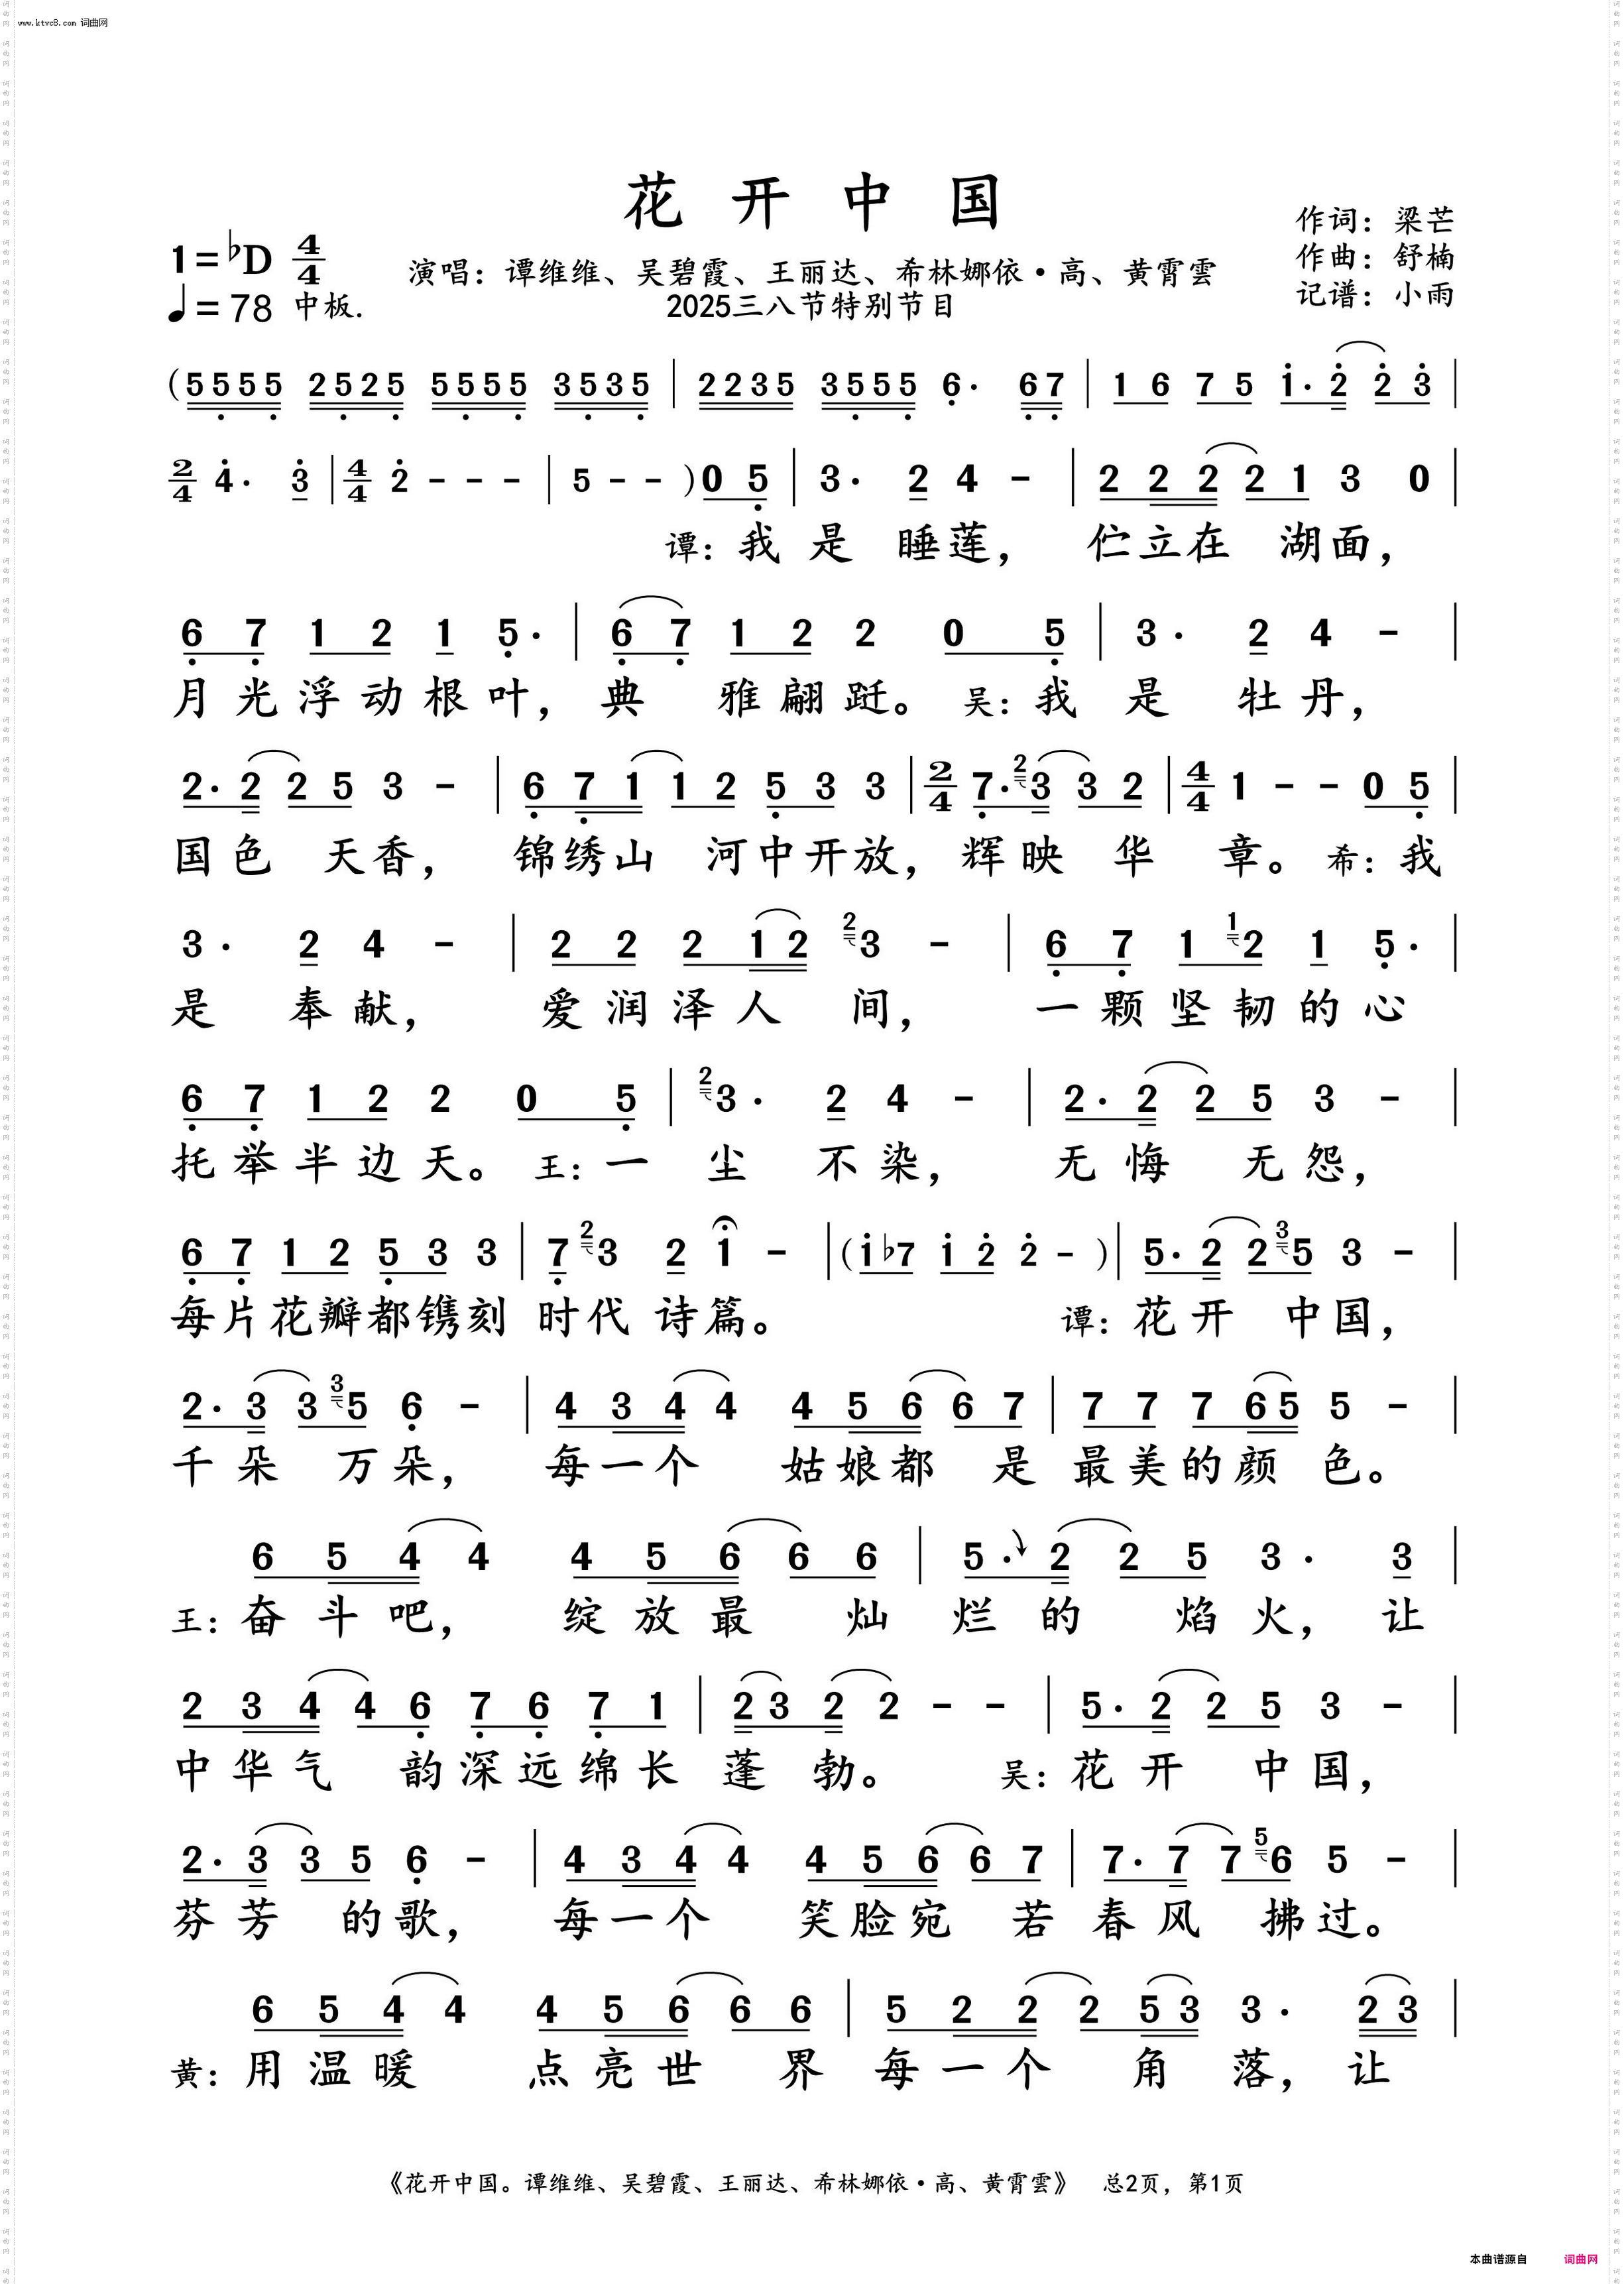 www.ktvc8.com 词曲网
花开中国
作词：梁芒
1=♭D 4/4
演唱：谭维维、吴碧霞、王丽达、希林娜依·高、黄霄雲
作曲：舒楠
♩=78 中板.
2025三八节特别节目
记谱：小雨
(5555 2525 5555 3535 | 2235 3555 6· 67 | 1 6 7 5 1· 2 2 3 |
2/4 4· 3 | 4/4 2 - - - | 5 - - ) 0 5 | 3· 2 4 - | 2 2 2 2 1 3 0 |
谭：我是睡莲，伫立在湖面，
6 7 1 2 1 5· | 6 7 1 2 2 0 5 | 3· 2 4 - |
月光浮动根叶，典雅翩跹。吴：我是牡丹，
2· 2 2 5 3 - | 6 7 1 1 2 5 3 3 | 2/4 7· 2 3 3 2 | 4/4 1 - - 0 5 |
国色天香，锦绣山河中开放，辉映华章。希：我
3· 2 4 - | 2 2 2 1 2 2 3 - | 6 7 1 1 2 1 5· |
是奉献，爱润泽人间，一颗坚韧的心
6 7 1 2 2 0 5 | 2 3· 2 4 - | 2· 2 2 5 3 - |
托举半边天。王：一尘不染，无悔无怨，
6 7 1 2 5 3 3 | 7 2 3 2 1 - | (1 ♭7 1 2 2 - ) | 5· 2 2 3 5 3 - |
每片花瓣都镌刻时代诗篇。谭：花开中国，
2· 3 3 3 5 6 - | 4 3 4 4 4 5 6 6 7 | 7 7 7 6 5 5 - |
千朵万朵，每一个姑娘都是最美的颜色。
6 5 4 4 4 5 6 6 6 | 5· 2 2 5 3· 3 |
王：奋斗吧，绽放最灿烂的焰火，让
2 3 4 4 6 7 6 7 1 | 2 3 2 2 - - | 5· 2 2 5 3 - |
中华气韵深远绵长蓬勃。吴：花开中国，
2· 3 3 5 6 - | 4 3 4 4 4 5 6 6 7 | 7· 7 7 5 6 5 - |
芬芳的歌，每一个笑脸宛若春风拂过。
6 5 4 4 4 5 6 6 6 | 5 2 2 2 5 3 3· 2 3 |
黄：用温暖点亮世界每一个角落，让
《花开中国。谭维维、吴碧霞、王丽达、希林娜依·高、黄霄雲》 总2页，第1页
本曲谱源自 词曲网